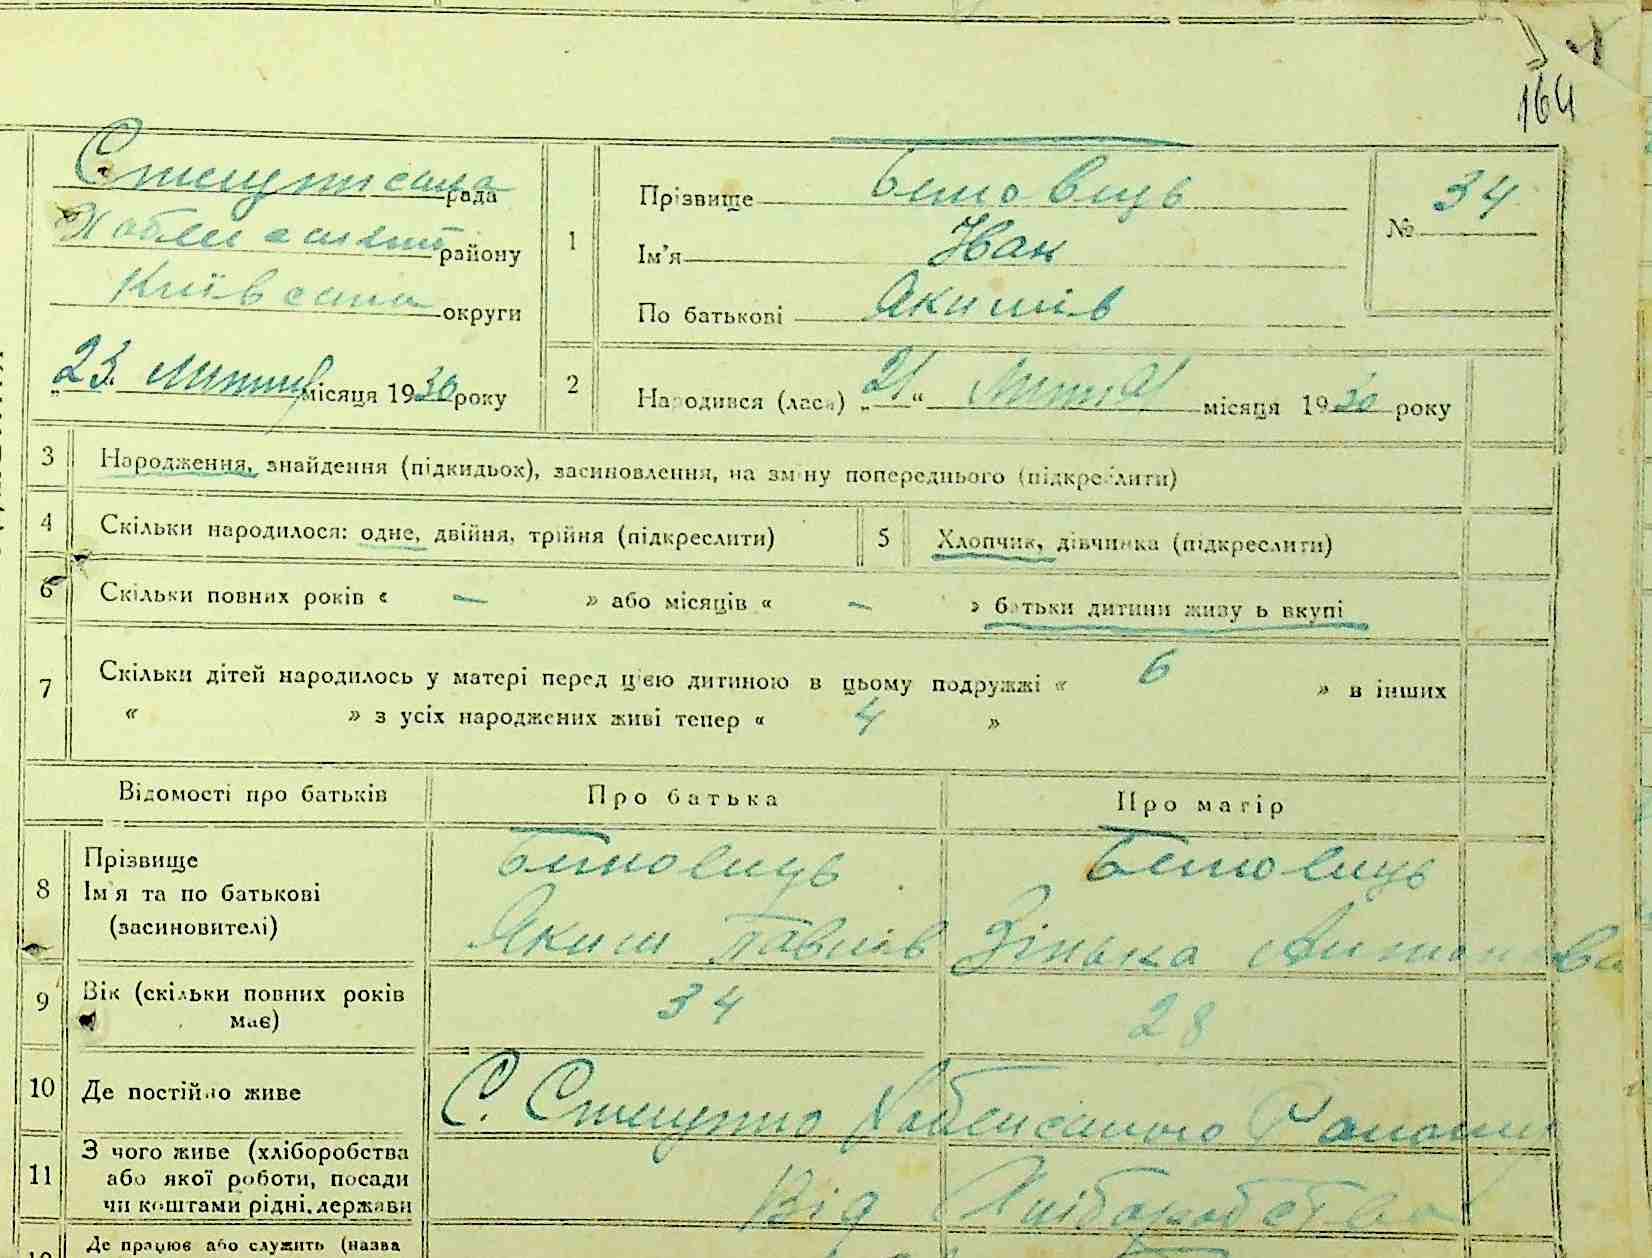 164
рада
району
Київська округи
„23“ місяця 1930 року
1
Прізвище
Ім'я Иван
По батькові Якимів
№ 34
2
Народився (лася) „21“ місяця 1930 року
3
Народження, знайдення (підкидьок), засиновлення, на зміну попереднього (підкреслити)
4
Скільки народилося: одне, двійня, трійня (підкреслити)
5
Хлопчик, дівчинка (підкреслити)
6
Скільки повних років « — » або місяців « — » батьки дитини живуть вкупі
7
Скільки дітей народилось у матері перед цією дитиною в цьому подружжі « 6 » в інших
« » з усіх народжених живі тепер « 4 »
Відомості про батьків
Про батька
Про матір
8
Прізвище
Ім'я та по батькові
(засиновителі)
Яким Павлів
Зінька Антонова
9
Вік (скільки повних років
має)
34
28
10
Де постійно живе
С.
11
З чого живе (хліборобства
або якої роботи, посади
чи коштами рідні, держави
Від Хліборобства
Де працює або служить (назва